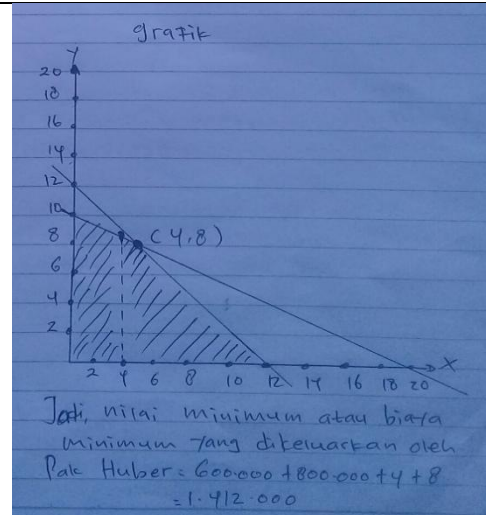 grafik
Y
20
18
16
14
12
10
8
6
4
2
(4,8)
2 4 6 8 10 12 14 16 18 20 X
Jadi, nilai minimum atau biaya
minimum yang dikeluarkan oleh
Pak Huber = 600.000 + 800.000 + 4 + 8
= 1.412.000